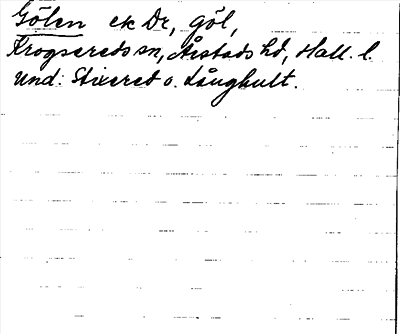 Gölen ek Dr, göl,
Krogsereds sn, Årstads hd, Hall. l.
Und: Stixered o. Långhult.